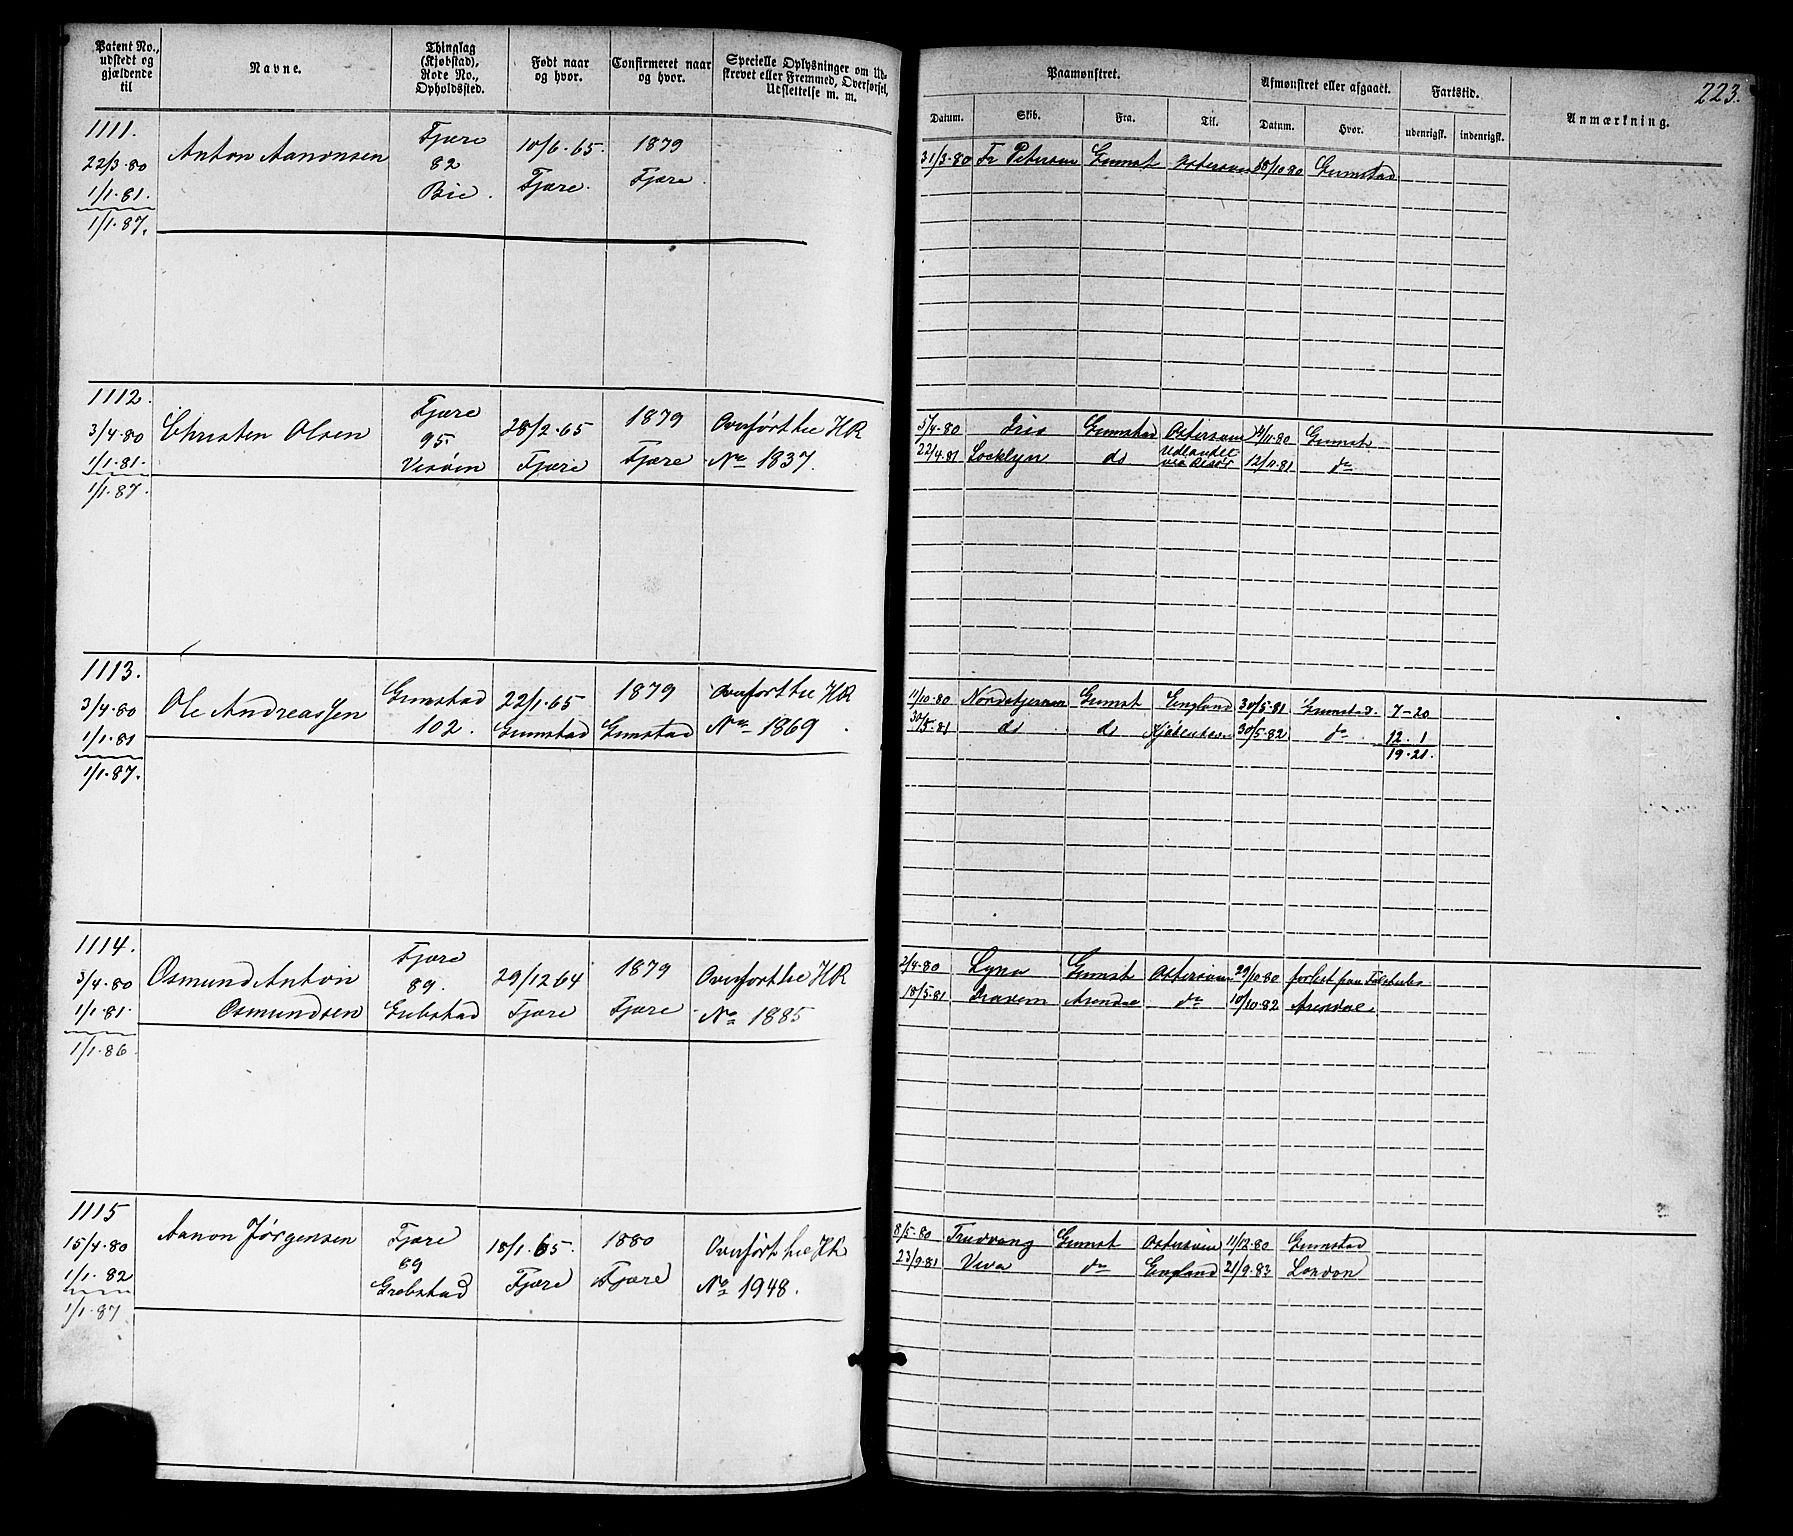 Patent No., udstedt og gjældende til
Navne.
Thinglag (Kjøbstad), Rode No., Opholdssted.
Født naar og hvor.
Confirmeret naar og hvor.
Specielle Oplysninger om Udskrevet eller Fremmed, Overførsel, Udslettelse m. m.
Paamønstret.
Afmønstret eller afgaaet.
Fartstid.
Anmærkning.
223.
Datum. Skib. Fra. Til. Datum. Hvor. udenrigsk. indenrigsk.
1111.
22/3·80
1/1·81.
1/1·87.
Anton Aanonsen
Fjære
82
Bie.
10/6·65.
Fjære.
1879
Fjære
31/3·80 Fr Petersen Grimst Østersøen 18/10·80 Grimstad
1112.
3/4·80
1/1·81.
1/1·87.
Christen Olsen
Fjære
95
Vesøen
28/2·65
Fjære
1879
Fjære
Overført til HR
No 1837.
5/4·80 Iris Grimstad Østersøen 14/11·80 Grimst
22/4·81 Locklyen do Udlandet via Risør 12/11·81 do
1113.
3/4·80
1/1·81
1/1·87.
Ole Andreassen
Grimstad
102.
22/1·65
Grimstad
1879
Grimstad
Overført til HR
No 1869.
11/10·80 Nordstjernen Grimst England 30/5·81 Grimstad. 7-20
30/5·81 do do Kjøbenhavn 30/5·82 do 12. 1
19·21.
1114.
3/4·80
1/1·81.
1/1·86
Osmund Anton
Osmundsen
Fjære
89.
Grebstad
29/12 64
Fjære
1879
Fjære
Overført til HR
No 1885
2/4·80 Lyna Grimst Østersøen 29/10·80 forlist paa Falsterbo
18/5·81 Arendal do 10/10·82 Arendal
1115
15/4·80
1/1·82
1/1·87
Aanon Jørgensen
Fjære
89
Grebstad
18/1·65.
Fjære
1880
Fjære
Overført til HR
No 1948.
8/5·80 Trudvang Grimst Østersøen 11/12·80 Grimstad
23/9·81 Viva do England 21/9·83 London